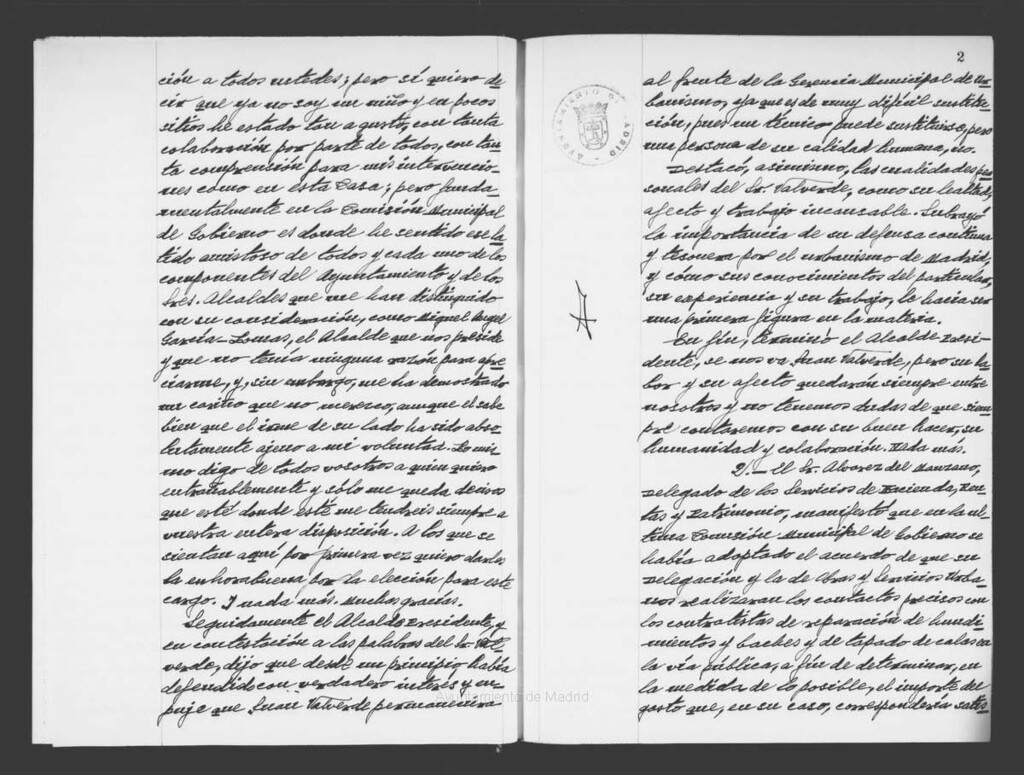 ción a todos ustedes; pero sí quiero de
cir que ya no soy un niño y en pocos
sitios he estado tan a gusto, con tanta
colaboración por parte de todos, con tan
ta comprensión para mis intervencio-
nes como en esta Casa; pero funda-
mentalmente en la Comisión Municipal
de Gobierno es donde he sentido ese la
tido amistoso de todos y cada uno de los
componentes del Ayuntamiento y de los
Sres. Alcaldes que me han distinguido
con su consideración, como Miguel Angel
García-Lomas, el Alcalde que nos preside
y que no tenía ninguna razón para apre
ciarme, y, sin embargo, me ha demostrado
un cariño que no merezco, aunque el sabe
bien que el irme de su lado ha sido abso-
lutamente ajeno a mi voluntad. Lo mis-
mo digo de todos vosotros a quien quiero
entrañablemente y sólo me queda deciros
que esté donde esté me tendreis siempre a
vuestra entera disposición. A los que se
sientan aquí por primera vez quiero darles
la enhorabuena por la elección para este
cargo. Y nada más. Muchas gracias.
Seguidamente el Alcalde Presidente, y
en contestación a las palabras del Sr. Val-
verde, dijo que desde un principio había
defendido con verdadero interés y em-
puje que Juan Valverde permaneciera
Ayuntamiento de Madrid
2
AYUNTAMIENTO DE MADRID
al frente de la Gerencia Municipal de Ur
banismo, ya que es de muy difícil sustitu
ción, pues un técnico puede sustituirse, pero
una persona de su calidad humana, no.
Destacó, asimismo, las cualidades per
sonales del Sr. Valverde, como su lealtad,
afecto y trabajo incansable. Subrayó
la importancia de su defensa continua
y tesonera por el urbanismo de Madrid,
y cómo sus conocimientos del particular,
su experiencia y su trabajo, le hacía ser
una primera figura en la materia.
En fin, terminó el Alcalde Presi-
dente, se nos va Juan Valverde, pero su la-
bor y su afecto quedarán siempre entre
nosotros y no tenemos dudas de que siem-
pre contaremos con su buen hacer, su
humanidad y colaboración. Nada más.
2).- El Sr. Alvarez del Manzano,
Delegado de los Servicios de Hacienda, Ren-
tas y Patrimonio, manifestó que en la úl-
tima Comisión Municipal de Gobierno se
había adoptado el acuerdo de que su
Delegación y la de Obras y Servicios Urba-
nos realizaran los contactos precisos con
los contratistas de reparación de hundi-
mientos y baches y de tapado de calas en
la vía pública, a fin de determinar, en
la medida de lo posible, el importe del
gasto que, en su caso, correspondería satis